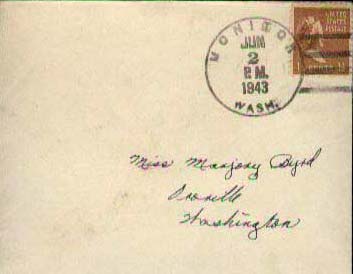 MONITOR
JUN
2
P.M.
1943
WASH.
UNITED STATES
POSTAGE
Miss Marjory Byrd
Oroville
Washington